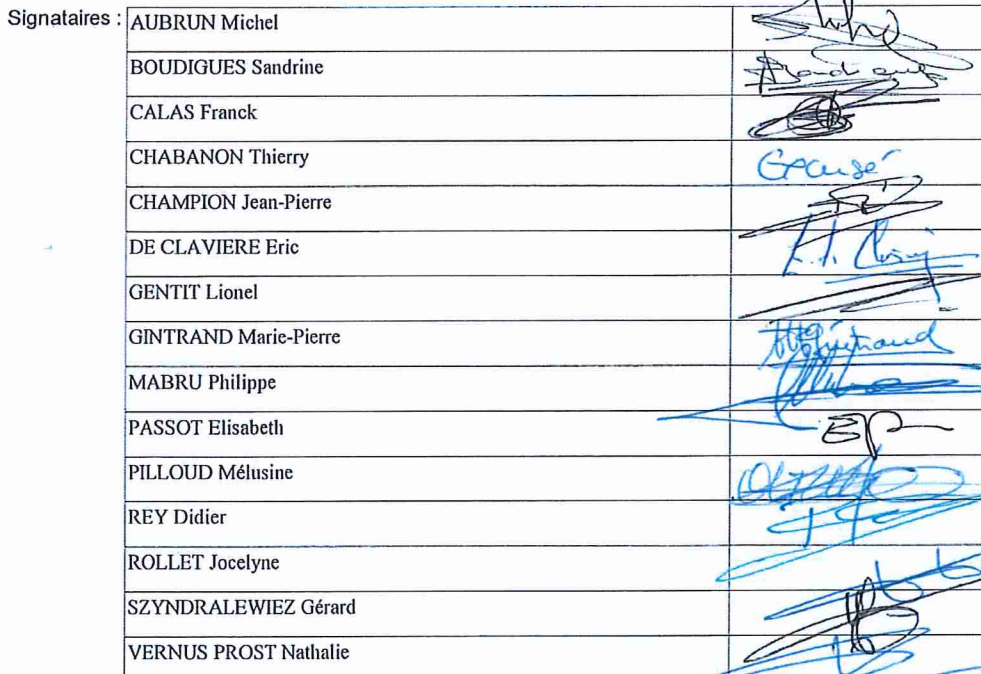 Signataires :
AUBRUN Michel
BOUDIGUES Sandrine
CALAS Franck
CHABANON Thierry
Excusé
CHAMPION Jean-Pierre
DE CLAVIERE Eric
GENTIT Lionel
GINTRAND Marie-Pierre
MABRU Philippe
PASSOT Elisabeth
EP
PILLOUD Mélusine
REY Didier
ROLLET Jocelyne
SZYNDRALEWIEZ Gérard
VERNUS PROST Nathalie